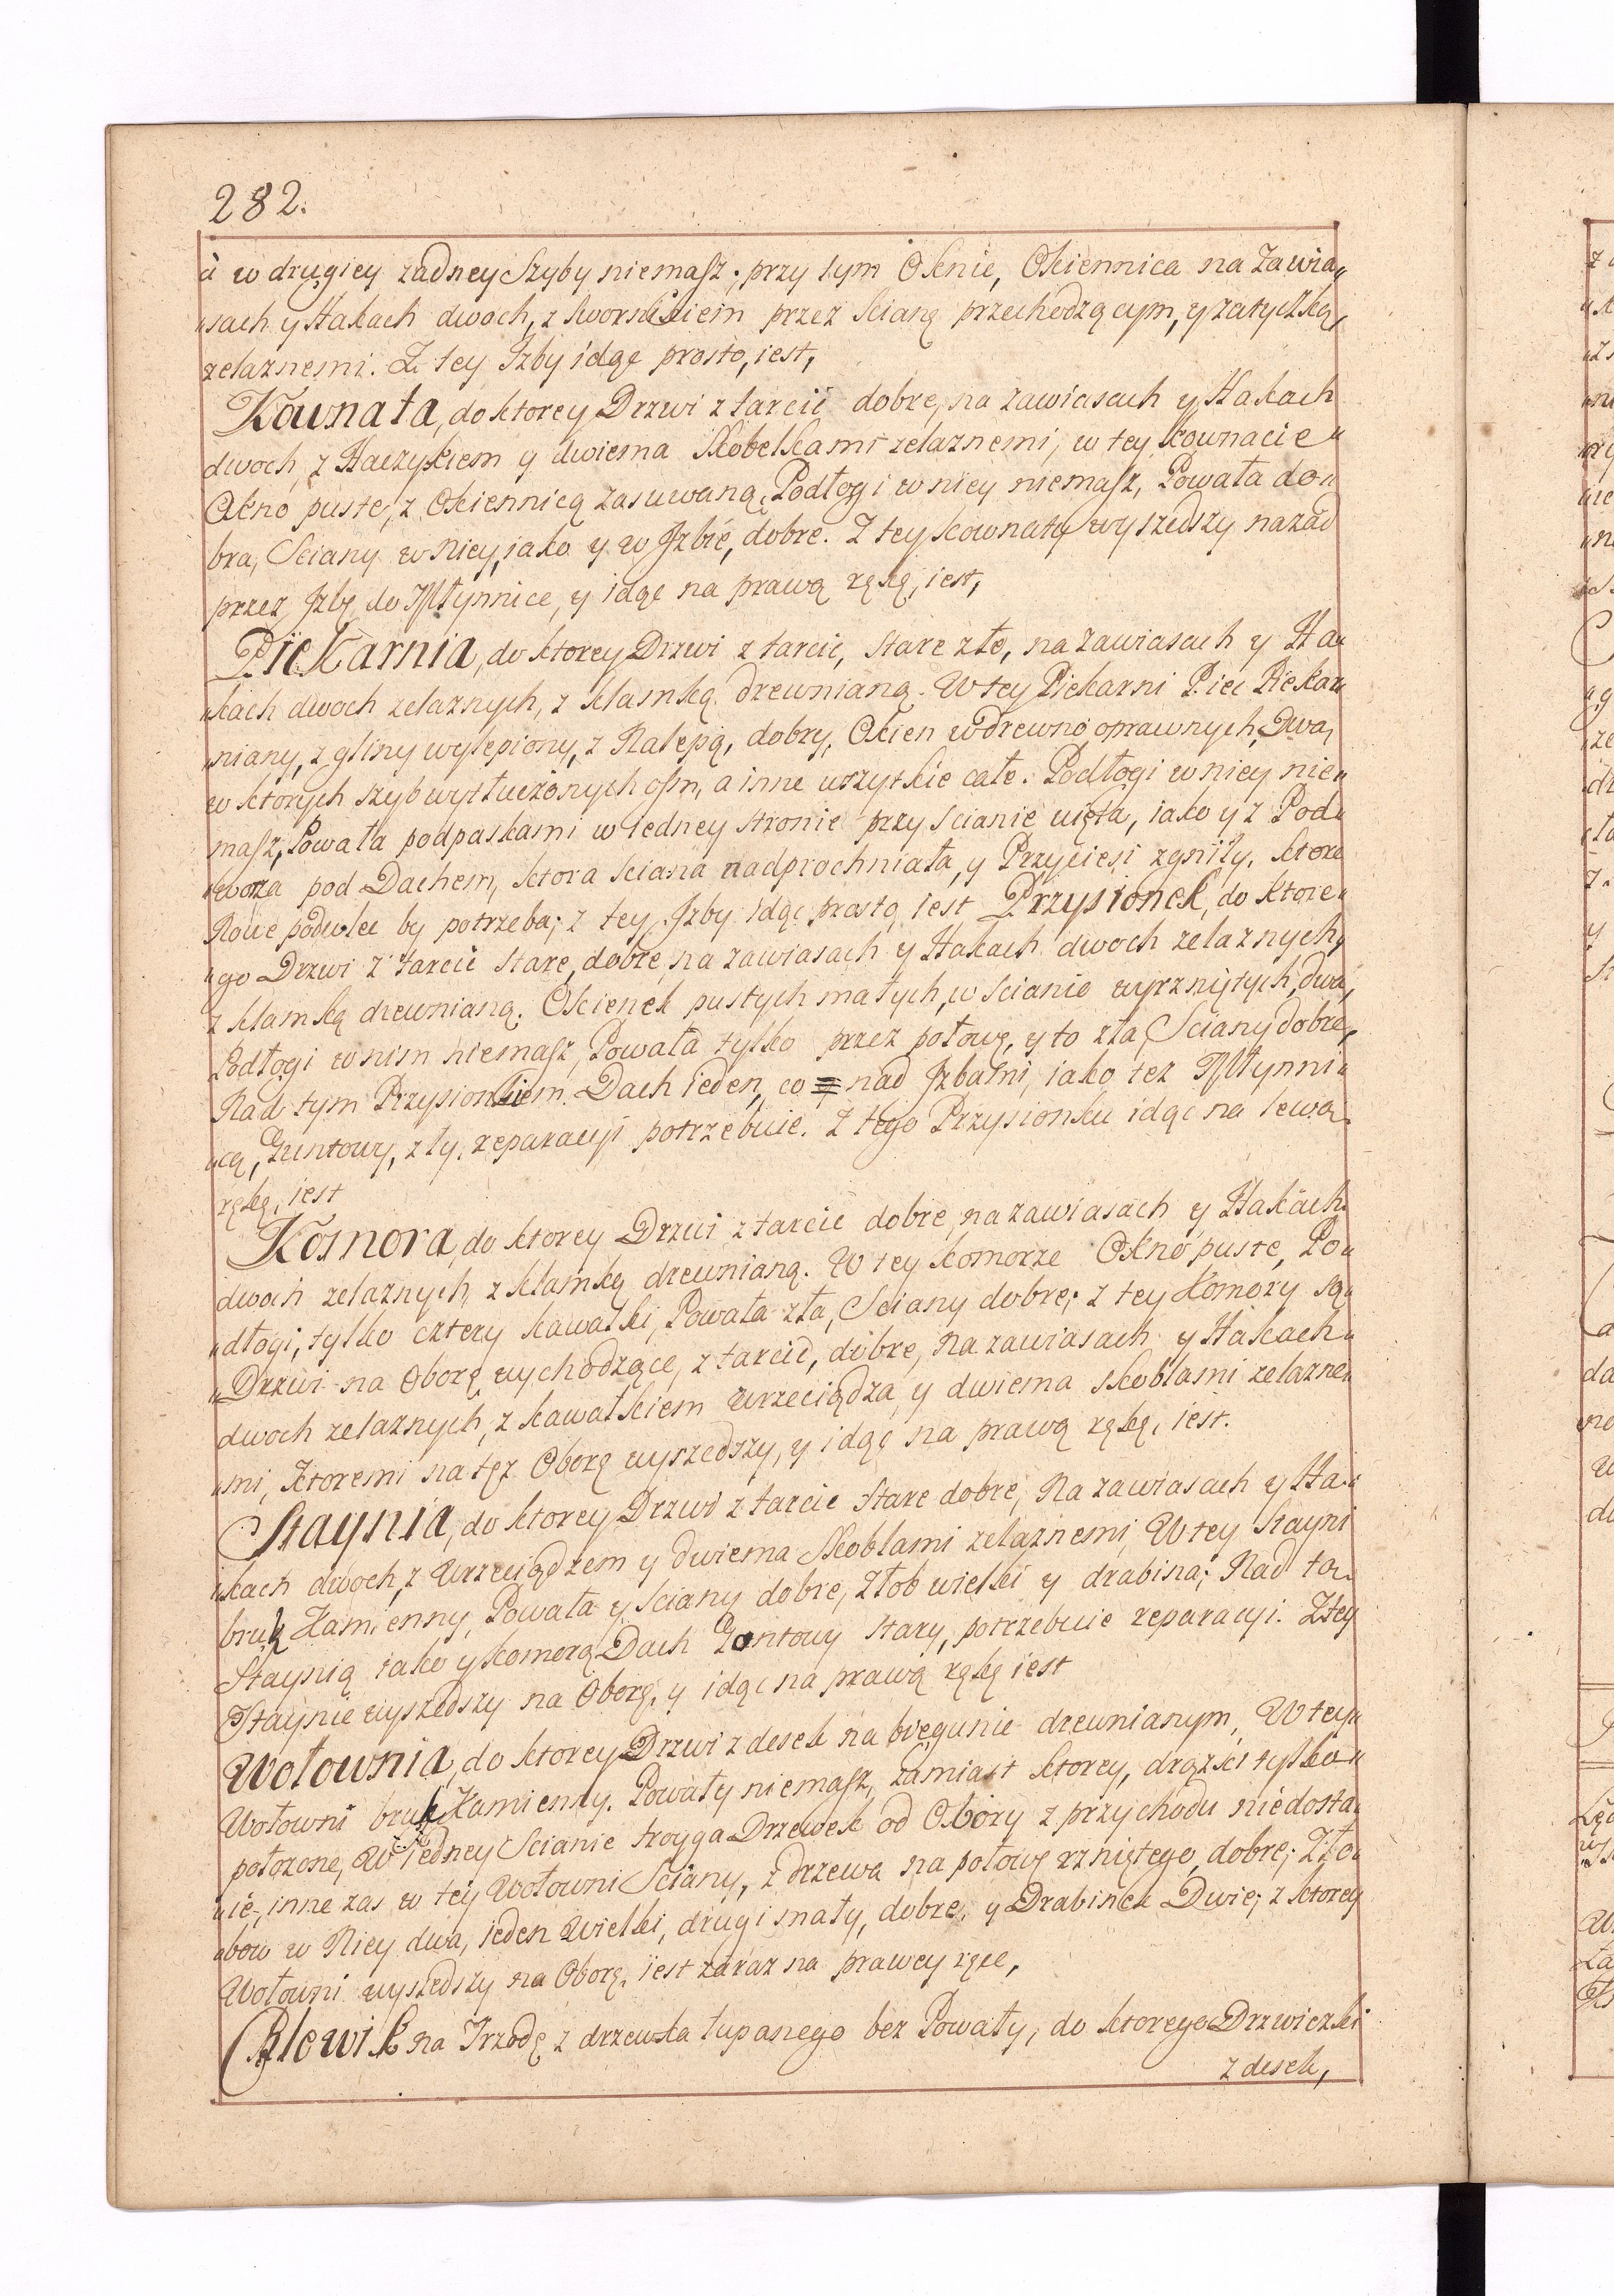 282.
à w drugiey zadney Szyby niemasz. przy tym Oknie, Okiennica na Zawia„
„sach y Hakach dwoch, z sworsnikiem przez Scianę przechodzącym, y zatyczką
zelaznemi. Z tey Izby idąc prosto, iest,
Kownata, do ktorey Drzwi z tarcic dobre, na zawiasach y Hakach
dwoch, z Haczykiem y dwiema Skobelkami zelaznemi, w tey kownacie„
Okno puste, z Okiennicą zasuwaną. Podłogi w niey niemasz, Powała do„
bra, Sciany w Niey, iako y w Izbie, dobre. Z tey kownaty wyszedszy nazad
przez Izbę, do Młynnice, y idąc na prawą rękę, iest,
Piekarnia, do ktorey Drzwi z tarcic, stare złe, na zawiasach y Ha„
„kach dwoch zelaznych, z klamką drewnianą. W tey Piekarni Piec Piekar„
„niany, z gliny wylepiony, z Nalepą, dobry, Okien w drewno oprawnych Dwa,
w ktorych szyb wytłuczonych osm, a inne wszytkie całe. Podłogi w niey nie„
masz, Powała podpaskami w iedney stronie przy scianie uięta, iako y z Pod„
„worza pod Dachem, ktora sciana nadprochniała, y Przyciesi zgniły, ktore
Nowe podwlec by potrzeba; z tey Izby idąc prosto iest Przysionek, do ktore„
„go Drzwi z tarcic stare, dobre, na zawiasach y Hakach dwoch zelaznych,
z klamką drewnianą. Okienek pustych małych, w scianie wyrzniętych, dwa,
Podłogi w nim niemasz, Powała tylko przez połowę, y to zła, Sciany dobre,
Nad tym Przysionkiem Dach ieden, co nad Izbami, iako też Młynni„
„cą, Guntowy, zły, reparacyi potrzebuie. Z tego Przysionku idąc na lewą
rękę, iest
Komora, do ktorey Drzwi z tarcic dobre, na zawiasach y Hakach
dwoch zelaznych, z klamką drewnianą. W tey komorze Okno puste, Po„
„dłogi, tylko cztery kawałki, Powała zła, Sciany dobre; z tey Komory są„
„Drzwi na Oborę wychodzące, z tarcic, dobre, na zawiasach y Hakach„
dwoch zelaznych, z kawałkiem wrzeciądza, y dwiema skoblami zelazne„
„mi, Ktoremi na tęż Oborę wyszedszy, y idąc na prawą rękę, iest.
Staynia, do ktorey Drzwi z tarcic stare dobre, Na zawiasach y Ha„
„kach dwoch, z Wrzeciądzem y dwiema Skoblami zelaznemi, W tey Stayni
bruk Kamienny, Powała y Sciany dobre, Złob wielki y drabina; Nad tą„
Staynią iako y komorą Dach Gontowy stary, potrzebuie reparacyi. Z tey
Staynie wyszedszy na Oborę, y idąc na prawą rękę iest
Wołownia, do ktorey Drzwi z desek na biegunie drewnianym, W tey„
Wołowni bruk Kamienny. Powały niemasz, zamiast ktorey, drążki tylko„
położone, W iedney Scianie troyga Drzewek od Obory z przychodu niedosta„
„ie, inne zas w tey Wołowni Sciany, z drzewa na połowę rzniętego, dobre; Zło„
„bow w Niey dwa, ieden Wielki, drugi mały, dobre, y Drabinek Dwie; z ktorey
Wołowni wyszedszy na Oborę, iest zaraz na prawey ręce,
Chlewik na Trzodę z drzewka łupanego bez Powały, do ktorego Drzwiczki
z desek,